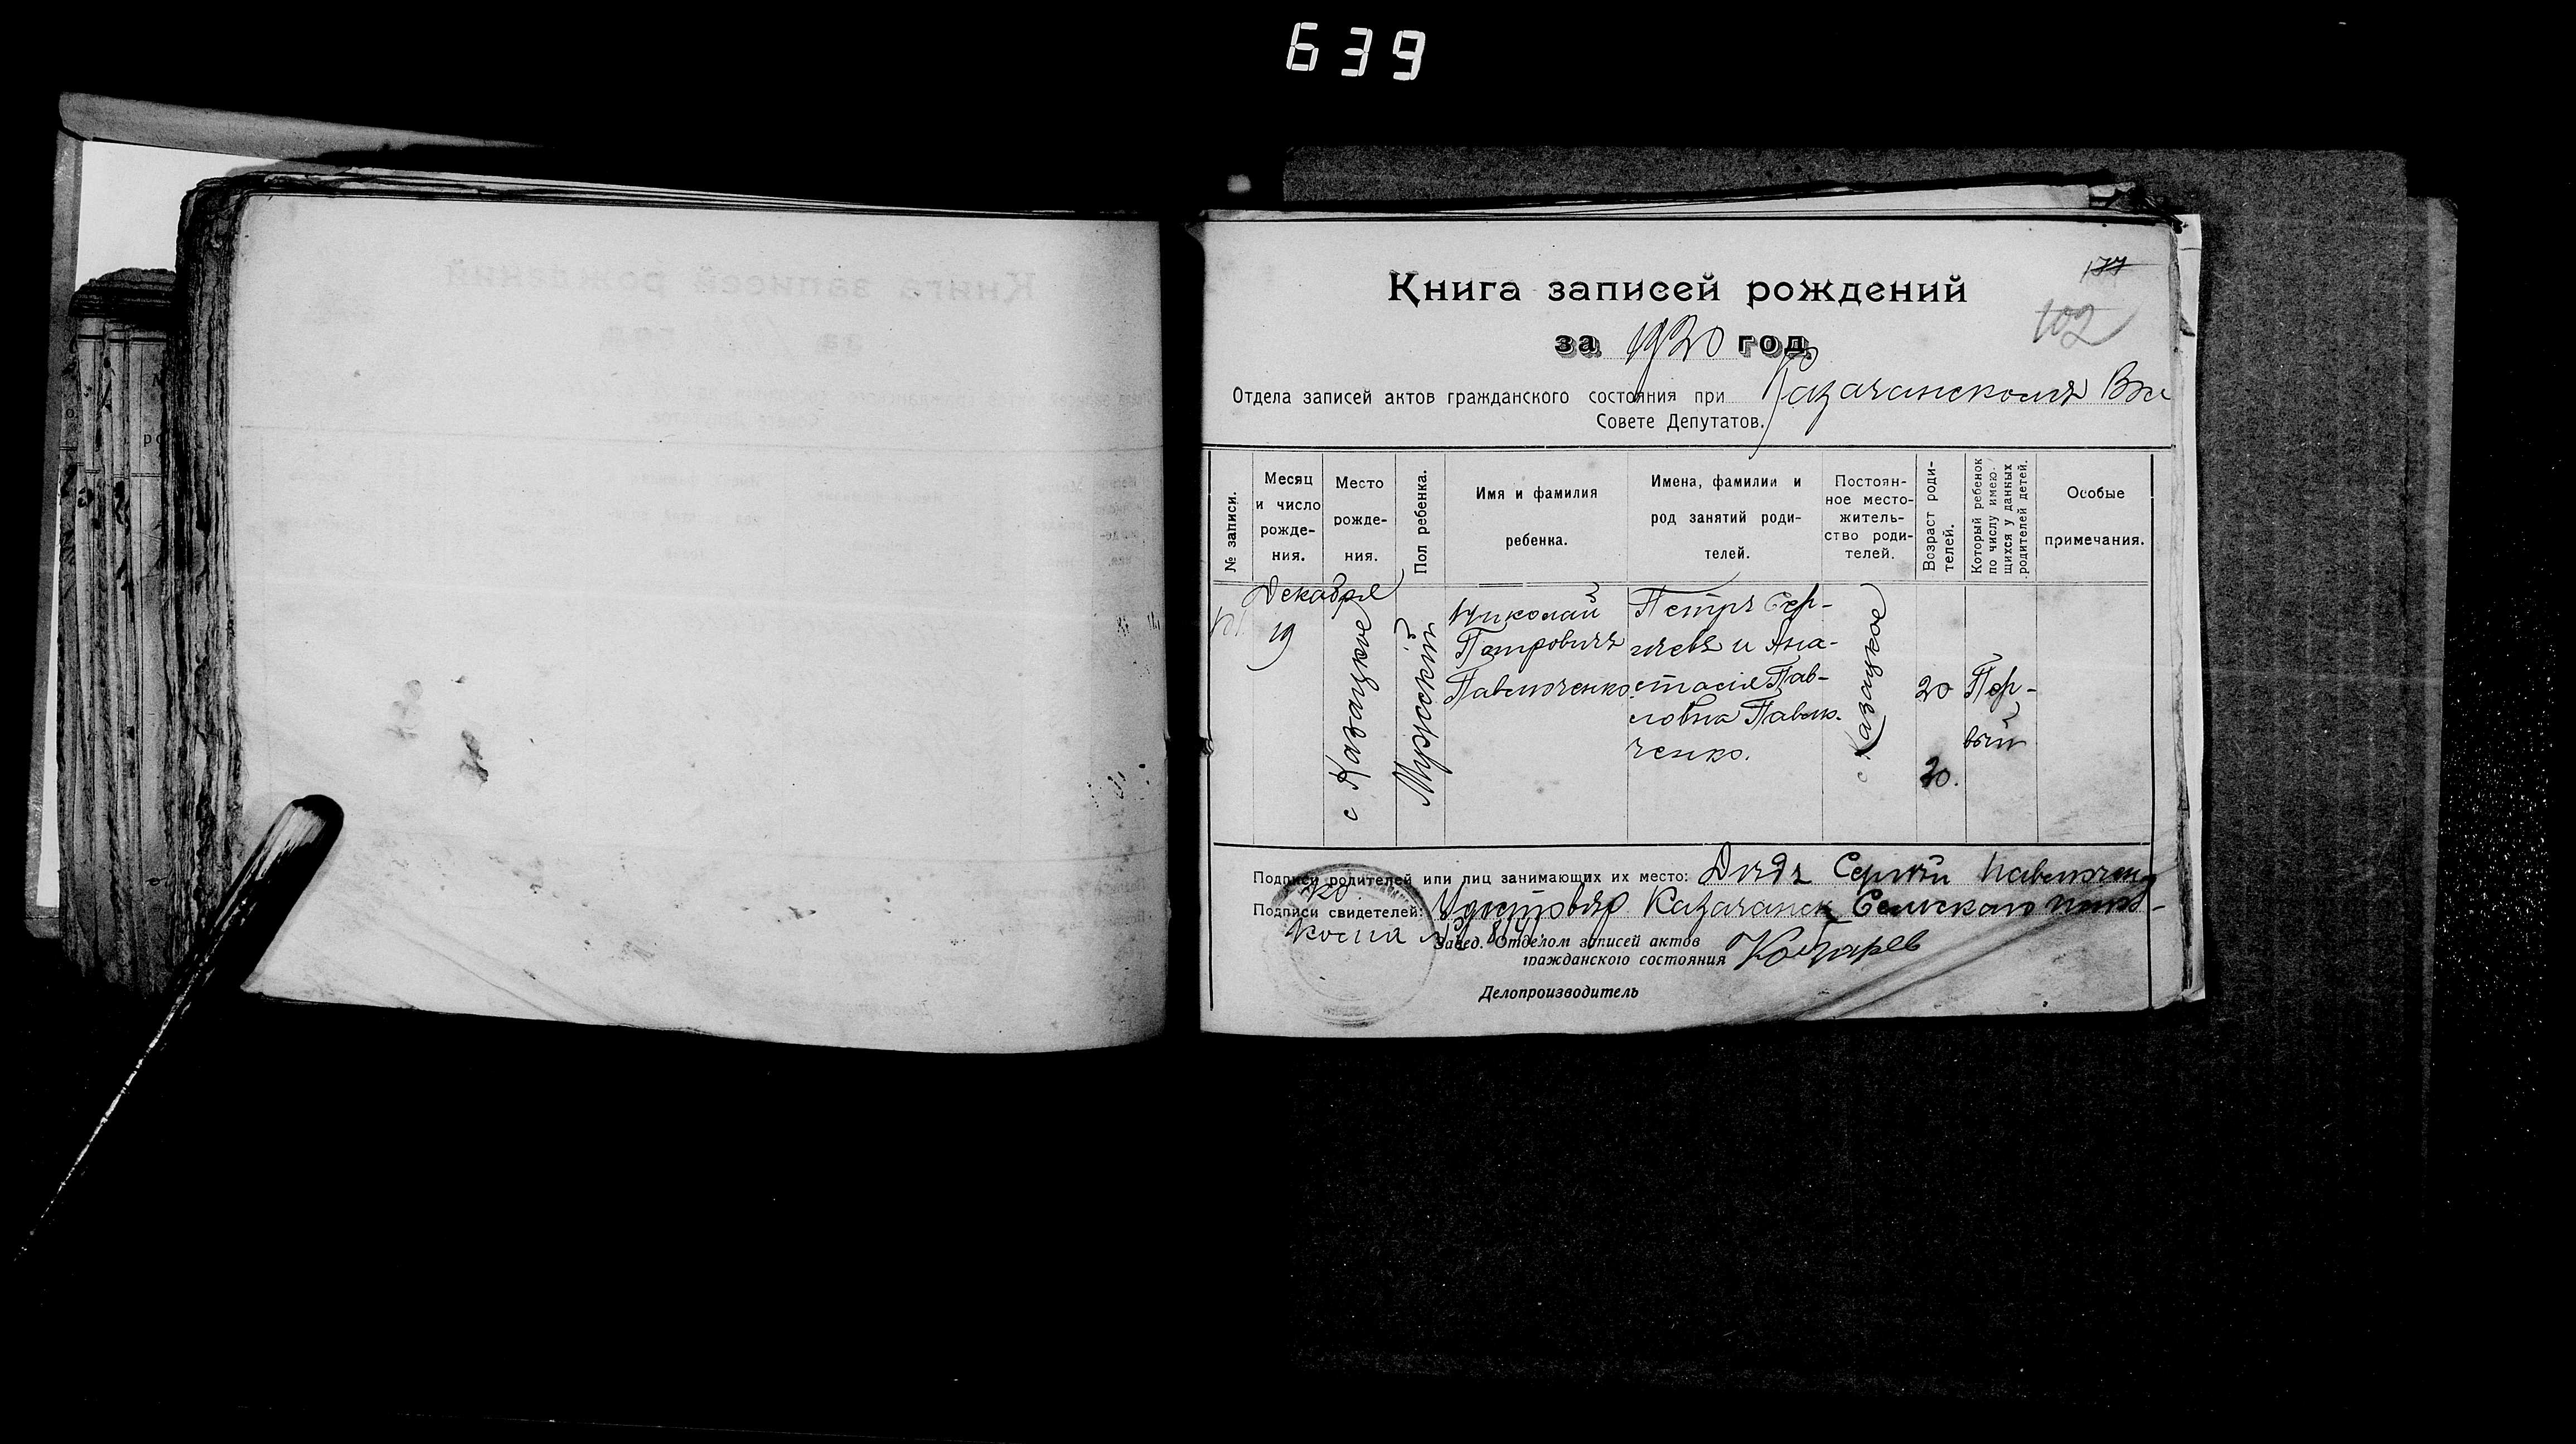 639
177
102
Книга записей рождений
за 1920 год.
Отдела записей актов гражданского состояния при Казачанскомъ
Совете Депутатов.
№ записи.
Месяц и число рожде- ния.
Место рожде- ния.
Пол ребенка.
Имя и фамилия ребенка.
Имена, фамилии и род занятий роди- телей.
Постоян- ное место- житель- ство роди- телей.
Возраст роди- телей.
Который ребенок по числу имею- щихся у данных родителей детей.
Особые примечания.
101
Декабря
19
с Казацкое
Мужской
Николай
Петровичъ
Павлюченко
Петръ Сер-
гиевъ и Ана-
стасія Пав-
ловна Павлю-
ченко.
с Казацкое
20
20.
Пер-
вый
Подписи родителей или лиц занимающих их место: Дидъ Сергѣй Павлючен
ко
Подписи свидетелей: Удостовѣр Казачанск Сельского
Завед. Отделом записей актов
гражданского состояния
Делопроизводитель